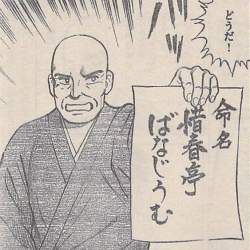 どうだ!
命名
惜春亭
ばなじうむ